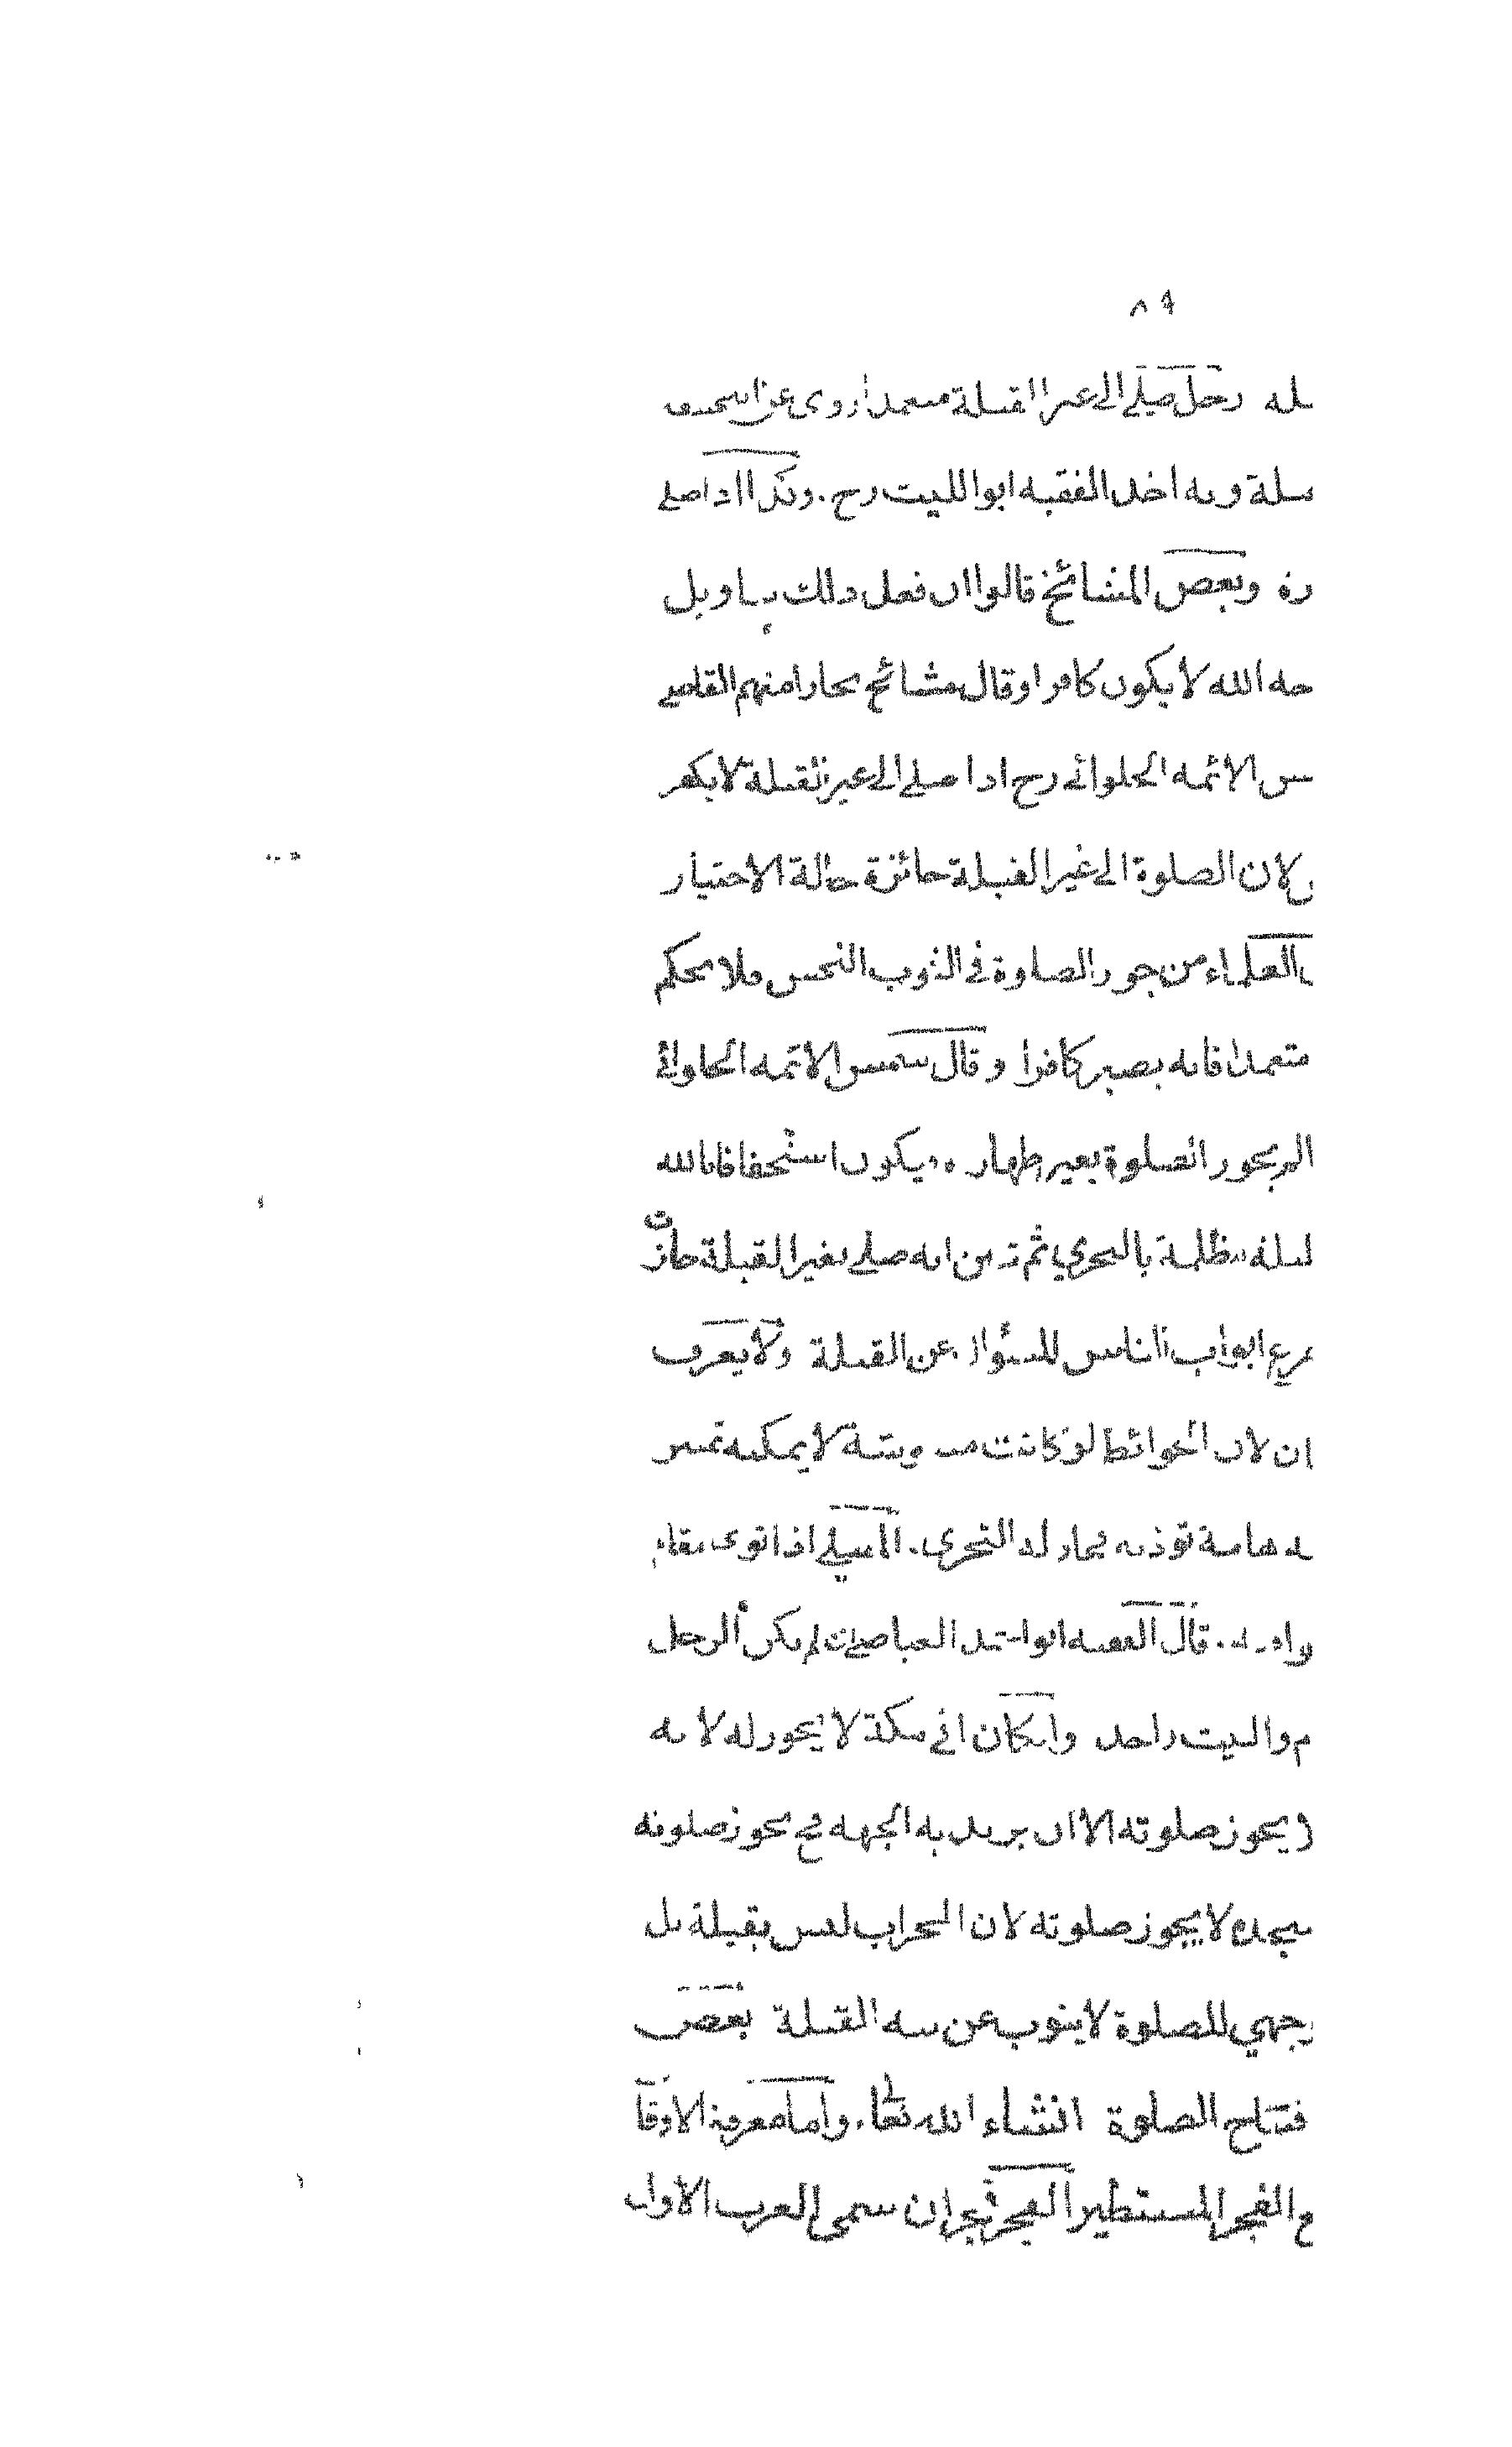 ٨٩
سله رجل صلى الى غير القبلة متعمدا روى عن ابى حنيفة
سلة وبه اخذ الفقيه ابو الليث رح. وكذا اذا صلى
ره وبعض المشائخ قالوا ان فعل ذلك بتاويل
حه الله لا يكون كافرا وقال مشائخ بخارا منهم القاضي
س الائمه الحلوائى رح اذا صلى الى غير القبلة لا يكفر
لان الصلوة الى غير القبلة جائزة حالة الاختيار
العلماء من جوز الصلوة في الثوب النجس فلا يحكم
متعمدا فانه يصير كافرا وقال شمس الائمه الحلوائى
يجوز الصلوة بغير طهارة ويكون استخفافا بالله
ليلة مظلمة بالتحري ثم تبين انه صلى لغير القبلة جازت
يقرع ابواب الناس للسؤال عن القبلة ولا يعرف
ان لان الحوائط لو كانت منقوشة لا يمكنه تمييز
هامة توذيه فجاز له التحرى. المصلى اذا نوى مقام
قال الفقيه ابو احمد العياضى ان لم يكن الرجل
م والبيت واحد وان كان اتى مكة لا يجوز له لانه
لا يجوز صلوته الا ان يريد به الجهة فح يجوز صلوته
مسجده لا يجوز صلوته لان المحراب ليس بقبلة بل
وجهي للصلوة لا ينوب عن نية القبلة بعض
فتتاح الصلوة انشاء الله تعا. واما معرفة الاوقا
ع الفجر المستطير الفجر فجران سمى العرب الاول